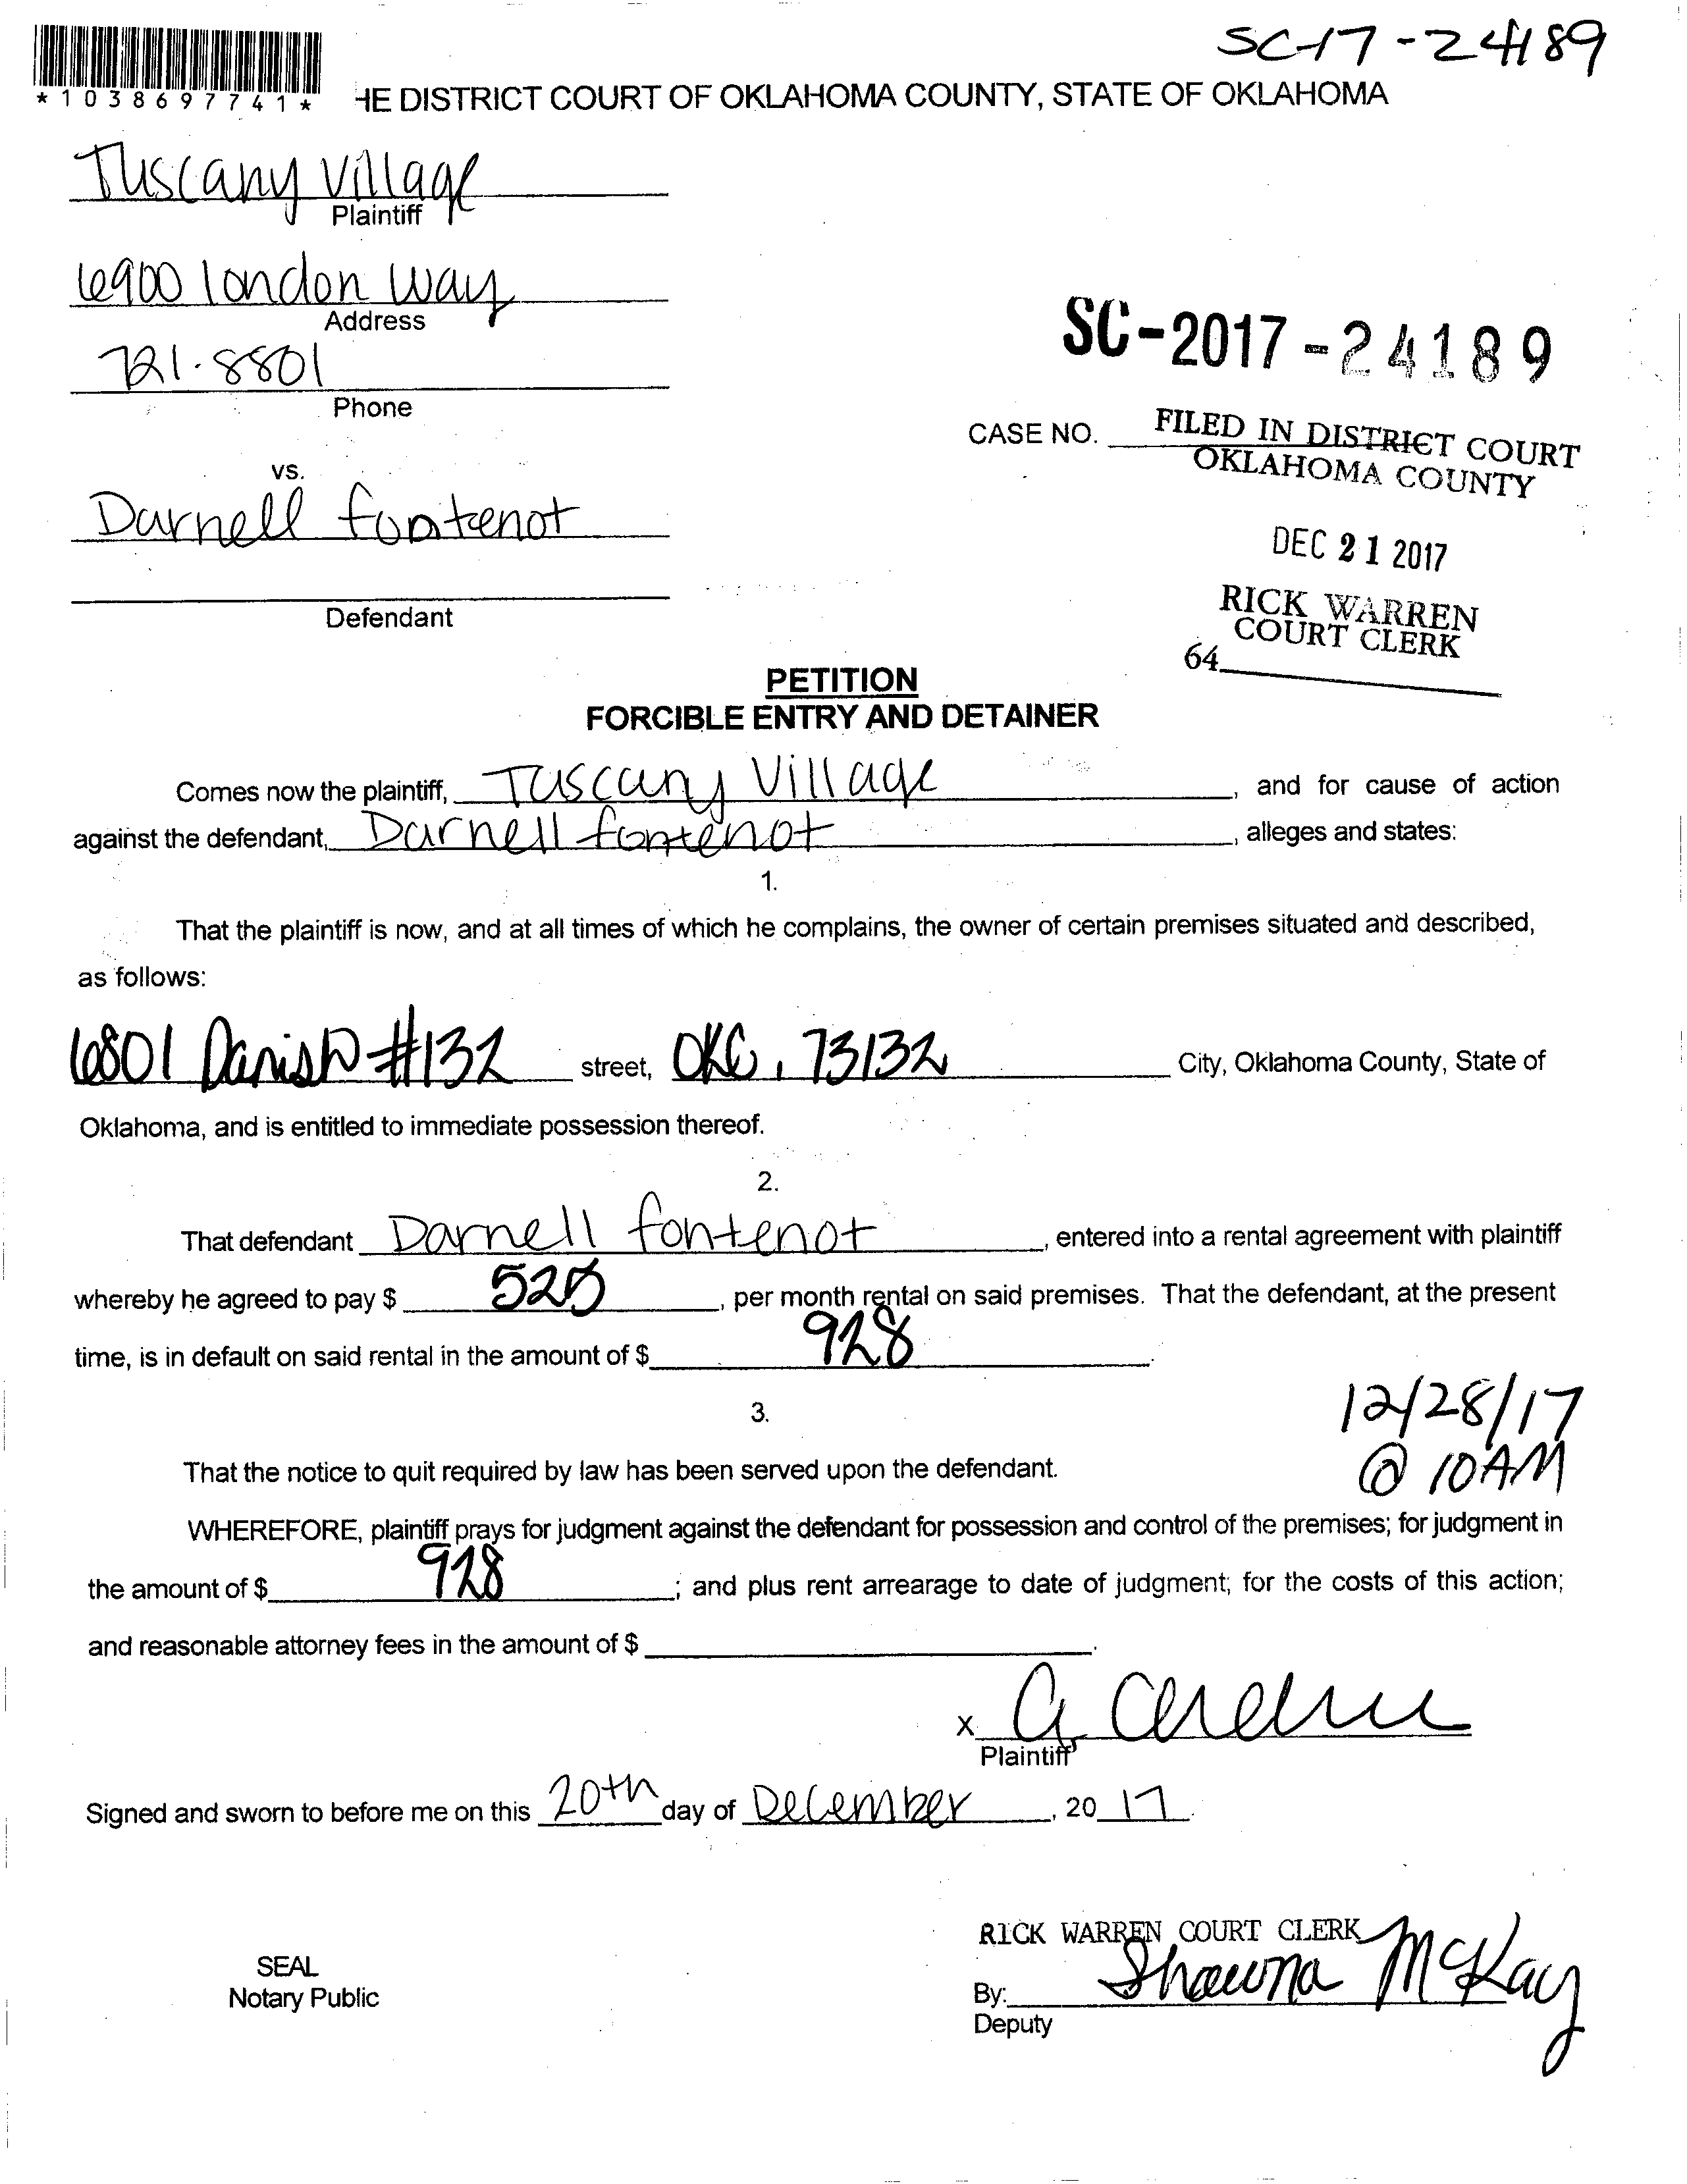 SC-17-24189
*1038697741*
HE DISTRICT COURT OF OKLAHOMA COUNTY, STATE OF OKLAHOMA
Tuscany Village
Plaintiff
6900 london way
Address
721-8801
Phone
SC-2017-24189
CASE NO.
FILED IN DISTRICT COURT
OKLAHOMA COUNTY
vs.
Darnell fontenot
Defendant
DEC 21 2017
RICK WARREN
COURT CLERK
64
PETITION
FORCIBLE ENTRY AND DETAINER
Comes now the plaintiff, Tuscany Village, and for cause of action
against the defendant, Darnell fontenot, alleges and states:
1.
That the plaintiff is now, and at all times of which he complains, the owner of certain premises situated and described,
as follows:
6801 Danish #132 street, OKC, 73132 City, Oklahoma County, State of
Oklahoma, and is entitled to immediate possession thereof.
2.
That defendant Darnell fontenot, entered into a rental agreement with plaintiff
whereby he agreed to pay $ 525, per month rental on said premises. That the defendant, at the present
time, is in default on said rental in the amount of $ 928.
3.
12/28/17
@ 10AM
That the notice to quit required by law has been served upon the defendant.
WHEREFORE, plaintiff prays for judgment against the defendant for possession and control of the premises; for judgment in
the amount of $ 928; and plus rent arrearage to date of judgment; for the costs of this action;
and reasonable attorney fees in the amount of $.
x
Plaintiff
Signed and sworn to before me on this 20th day of December, 2017.
RICK WARREN COURT CLERK
SEAL
Notary Public
By: Shawna McKay
Deputy